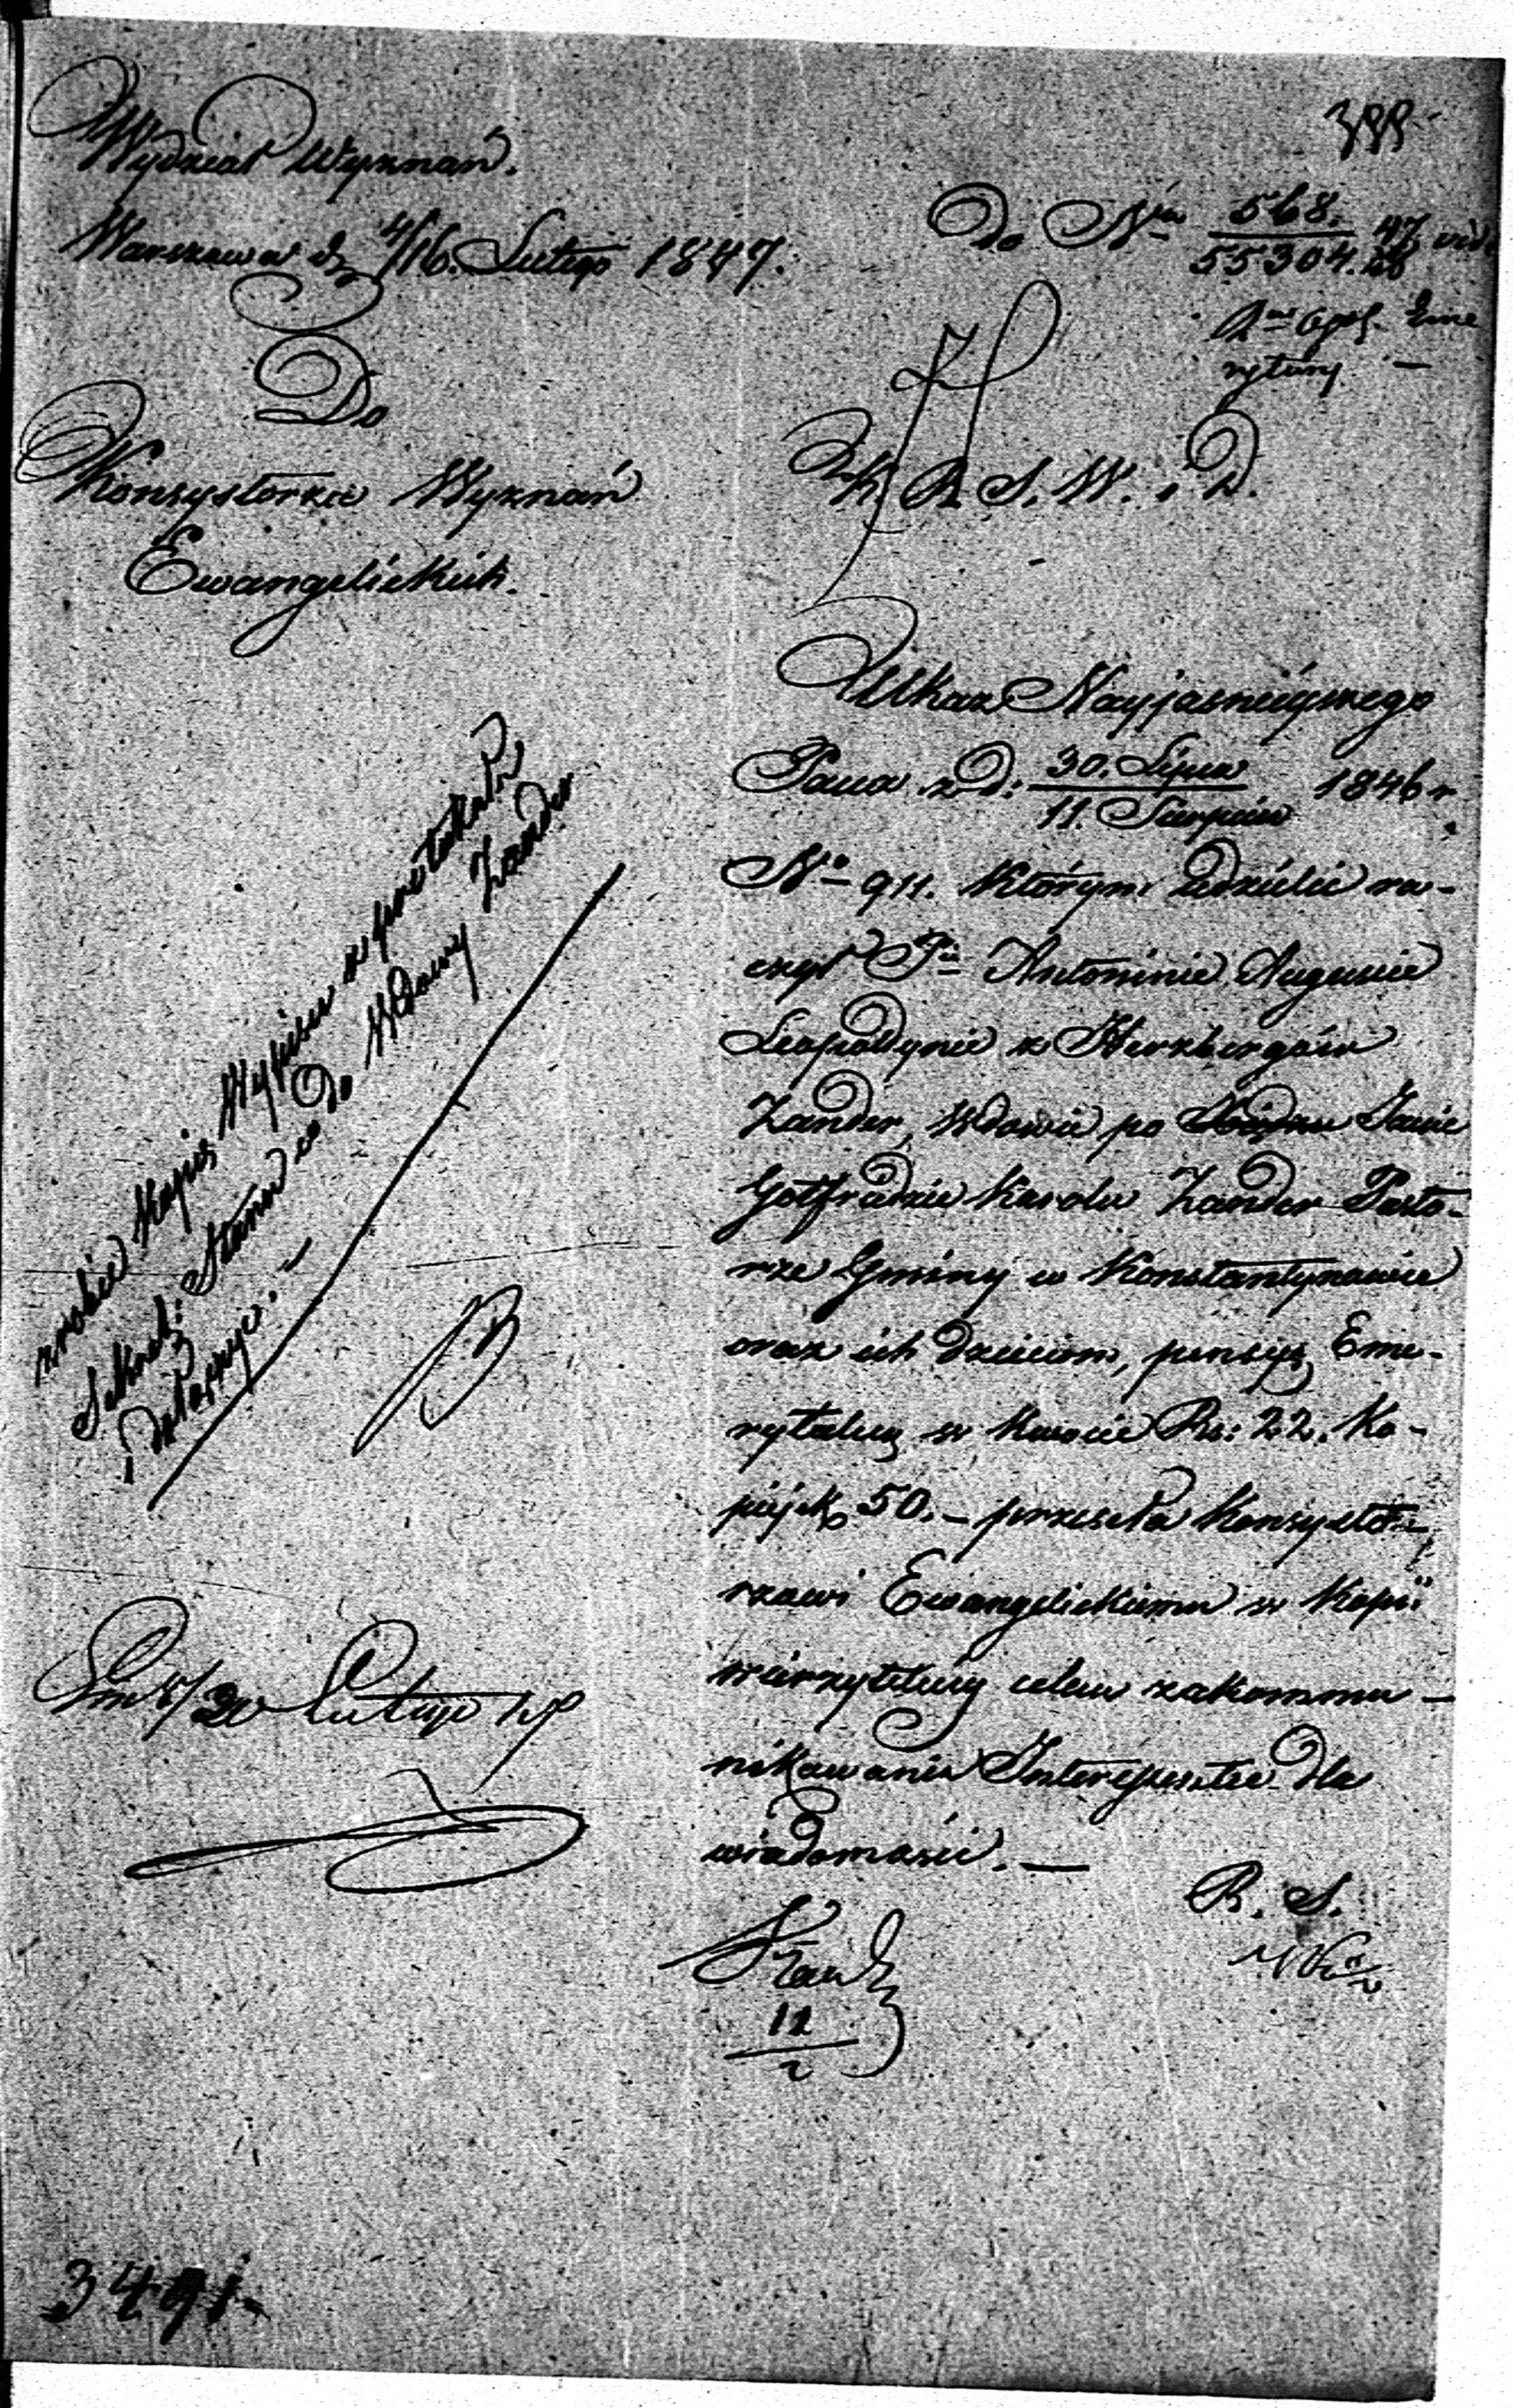 Wydział Wyznań.
Warszawa d. 4/16. Lutego 1847.
Do
Konsystorza Wyznań
Ewangelickich.
Do Nru 568. 47
55304. 46
Eme
rytury —
K. R. S. W. i D.
Ukaz Nayjaśnieyszego
Pana z d: 30. Lipca 1846 r.
11. Sierpnia
No 911. którym udzielić ra-
czył Pni Antoninie Auguście
Leopoldynie z Herzbergów
Zander, Wdowie po Janie
Gotfrydzie Karolu Zander Pasto-
rze Gminy w Konstantynowie
oraz ich dzieciom, pensyą Eme-
rytalną w kwocie Rs: 22. Ko-
piejek 50. — przesyła Konsysto-
rzowi Ewangelickiemu w kopii
wierzytelney celem zakommu-
nikowania Interessentce dla
wiadomości. —
R. S.
12
2
zrobić kopią Wypisu z protokułu
Sekret: Stanu do Wdowy Zander
i dołączyć. —
20 Lutego
3491